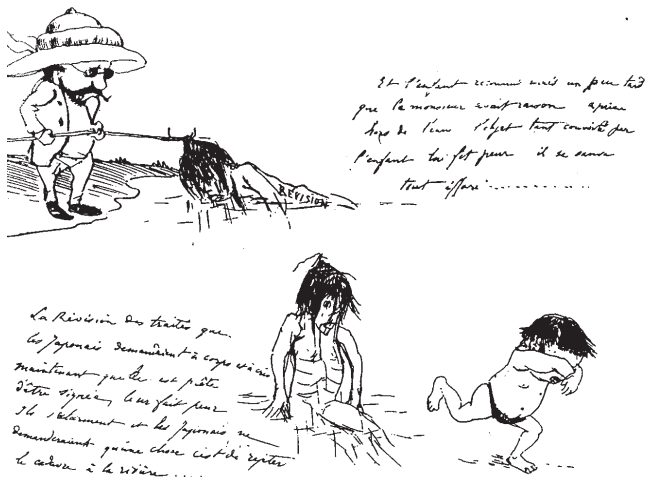 Et l'enfant reconnu mais un peu tard
que le monsieur avait raison à peine
hors de l'eau l'objet tant convoité par
l'enfant lui fit peur il se sauva
tout effaré ............
REVISION
La Révision des traités que
les Japonais demandaient à corps et à cris
maintenant qu'elle est prête
d'être signée, leur fait peur
Ils s'alarment et les Japonais ne
demanderaient qu'une chose c'est de rejeter
le cadavre à la rivière ....